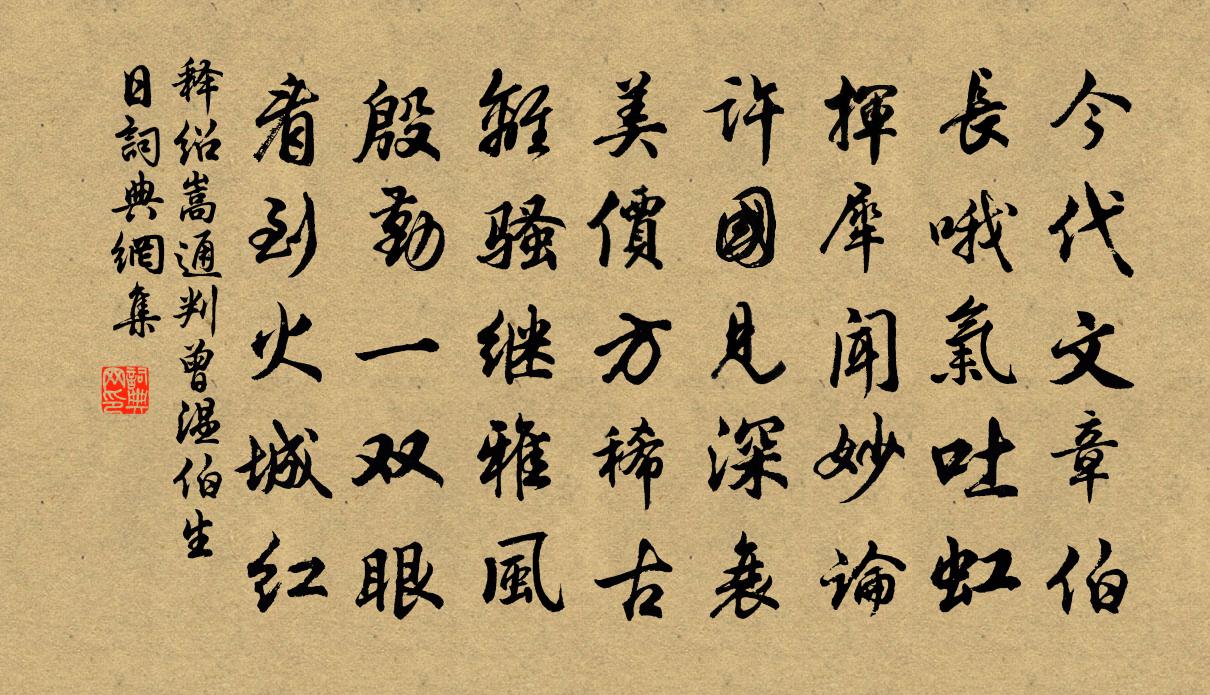 今代文章伯
長哦氣吐虹
揮犀聞妙論
許國見深衷
美價方稀古
離騷继雅風
殷勤一双眼
看到火城红
释绍嵩通判曾温伯生
日詞典網集
詞典网印